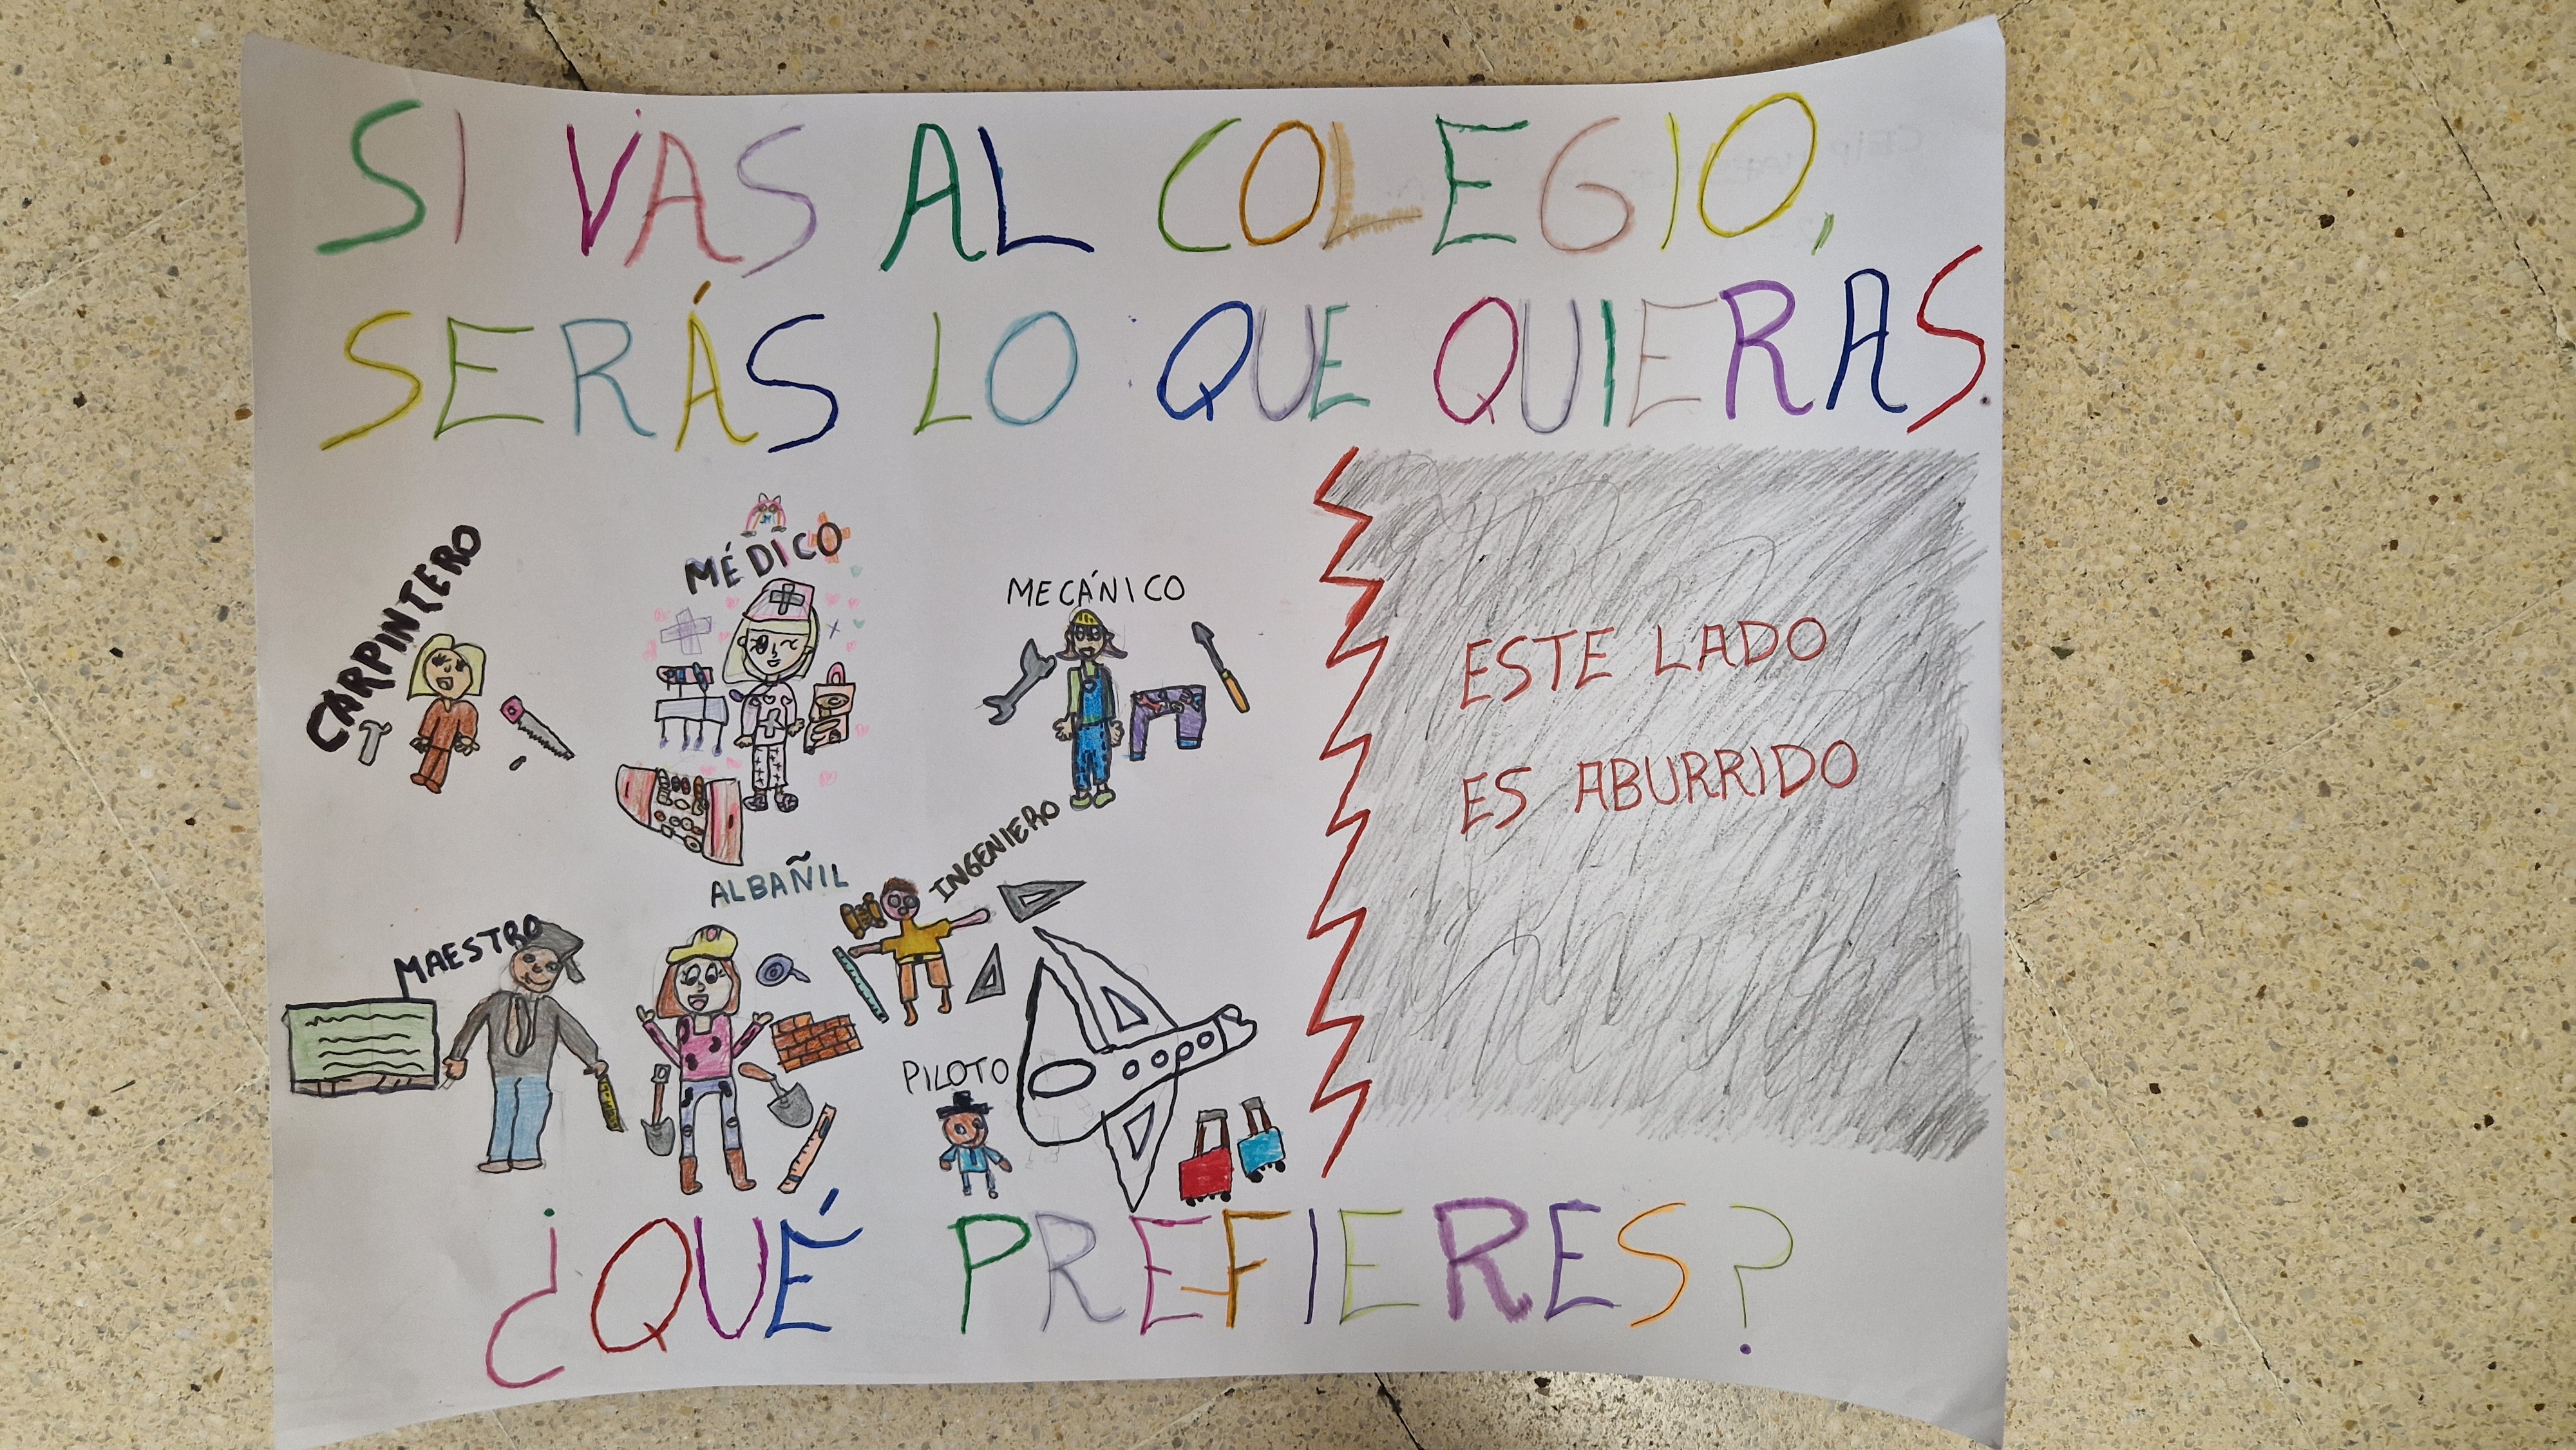 SI VAS AL COLEGIO,
SERÁS LO QUE QUIERAS.
CARPINTERO
MÉDICO
MECÁNICO
ESTE LADO
ES ABURRIDO
MAESTRO
ALBAÑIL
INGENIERO
PILOTO
¿QUÉ PREFIERES?